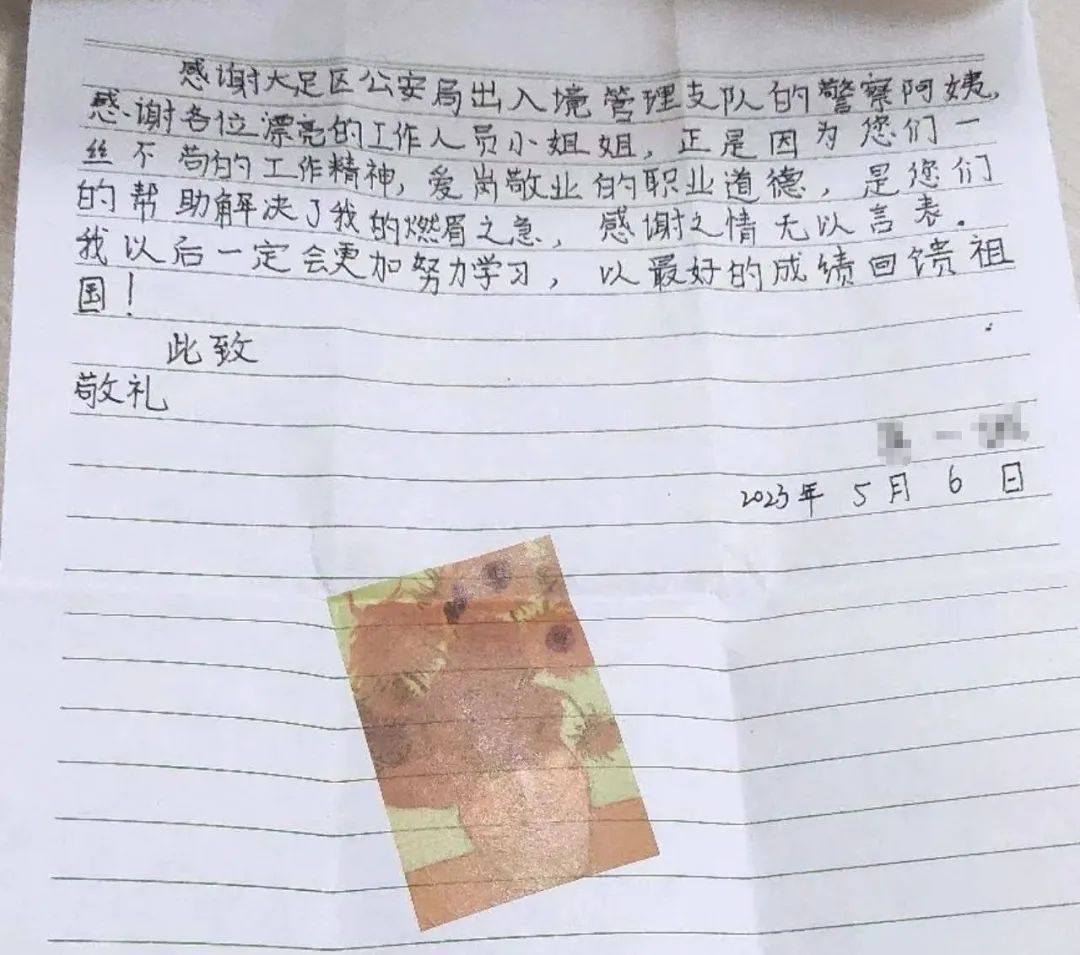 感谢大足区公安局出入境管理支队的警察阿姨,
感谢各位漂亮的工作人员小姐姐，正是因为您们一
丝不苟的工作精神，爱岗敬业的职业道德，是您们
的帮助解决了我的燃眉之急，感谢之情无以言表。
我以后一定会更加努力学习，以最好的成绩回馈祖
国！
此致
敬礼
一
2023年 5月 6日